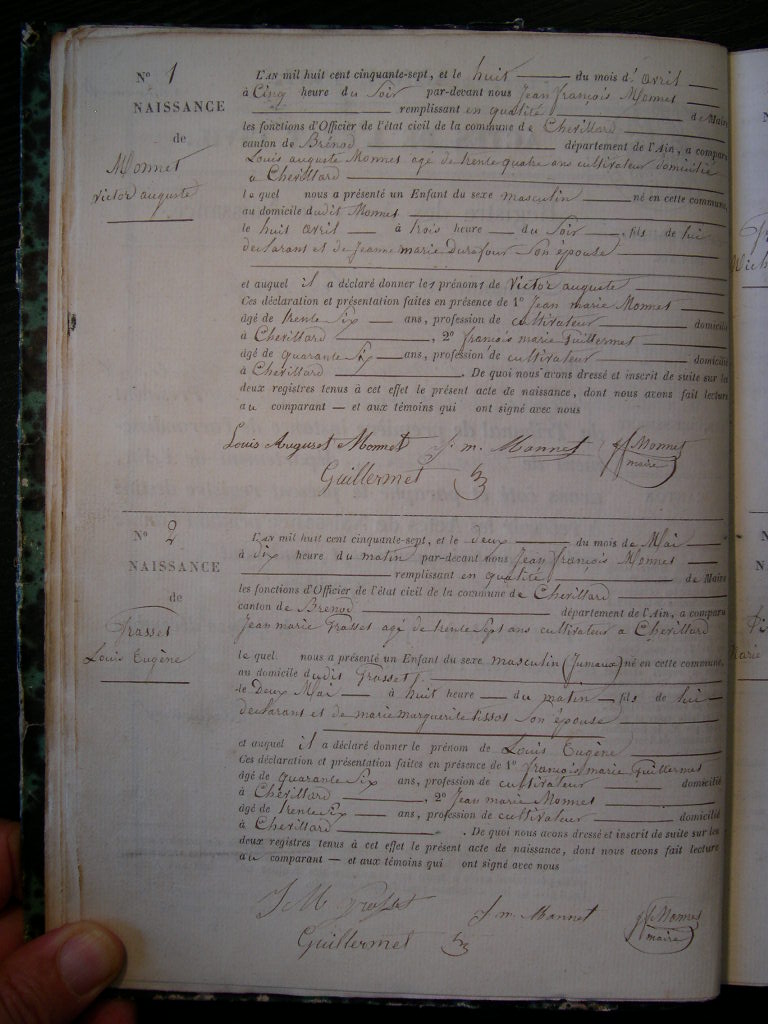 N° 1
NAISSANCE
de
Monnet
Victor auguste
L'AN mil huit cent cinquante-sept, et le huit du mois d'avril
à Cinq heure du Soir par-devant nous Jean François Monnet
remplissant en qualité de Maire
les fonctions d'Officier de l'état civil de la commune de Chevillard
canton de Brénod département de l'Ain, a comparu
Louis auguste Monnet agé de trente quatre ans cultivateur domicilié
a Chevillard
le quel nous a présenté un Enfant du sexe masculin né en cette commune,
au domicile dudit Monnet
le huit avril à trois heure du Soir, fils de lui
declarant et de Jeanne marie Durafour Son épouse
et auquel il a déclaré donner les prénoms de Victor auguste
Ces déclaration et présentation faites en présence de 1° Jean marie Monnet
âgé de trente Six ans, profession de cultivateur domicilié
à Chevillard, 2° françois marie Guillermet
âgé de quarante Six ans, profession de cultivateur domicilié
à Chevillard. De quoi nous avons dressé et inscrit de suite sur les
deux registres tenus à cet effet le présent acte de naissance, dont nous avons fait lecture
au comparant — et aux témoins qui ont signé avec nous
Louis Auguset Monnet J. m. Monnet jf Monnet
maire
Guillermet
N° 2
NAISSANCE
de
Grasset
Louis Eugène
L'AN mil huit cent cinquante-sept, et le deux du mois de Mai
à dix heure du matin par-devant nous Jean françois Monnet
remplissant en qualité de Maire
les fonctions d'Officier de l'état civil de la commune de Chevillard
canton de Brenod département de l'Ain, a comparu
Jean marie Grasset agé de trente Sept ans cultivateur a Chevillard
le quel nous a présenté un Enfant du sexe masculin (Jumeaux) né en cette commune,
au domicile dudit Grasset
le Deux Mai à huit heure du matin fils de lui
declarant et de marie marguerite Tissot Son épouse
et auquel il a déclaré donner le prénom de Louis Eugène
Ces déclaration et présentation faites en présence de 1° françois marie Guillermet
âgé de quarante Six ans, profession de cultivateur domicilié
à Chevillard, 2° Jean marie Monnet
âgé de trente Six ans, profession de cultivateur domicilié
à Chevillard. De quoi nous avons dressé et inscrit de suite sur les
deux registres tenus à cet effet le présent acte de naissance, dont nous avons fait lecture
au comparant — et aux témoins qui ont signé avec nous
J M Grasset J m. Monnet jf Monnet
maire
Guillermet